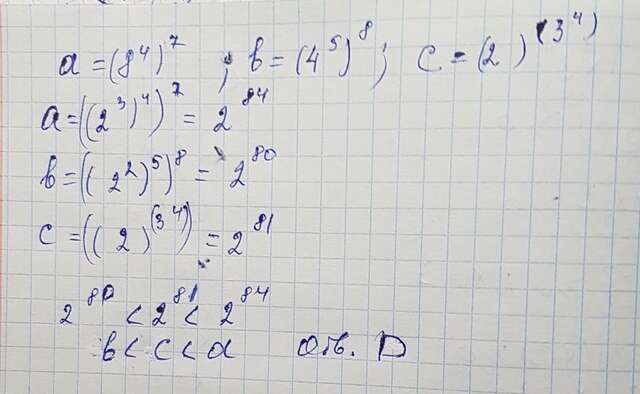 a = (8⁴)⁷ ; b = (4⁵)⁸ ; c = (2)^(3⁴)
a = ((2³)⁴)⁷ = 2⁸⁴
b = ((2²)⁵)⁸ = 2⁸⁰
c = ((2)^(3⁴)) = 2⁸¹
2⁸⁰ < 2⁸¹ < 2⁸⁴
b < c < a Отв. D